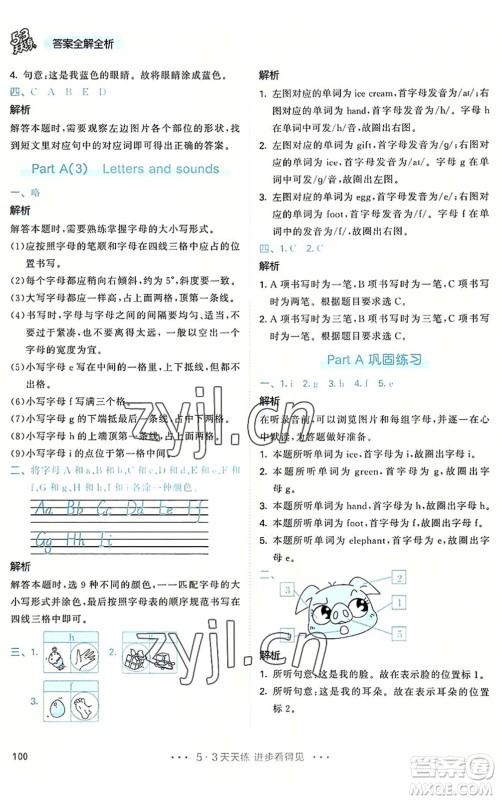 53天天练 答案全解全析
4. 句意：这是我蓝色的眼睛。故将眼睛涂成蓝色。
四、C A B E D
解析
解答本题时，需要观察左边图片各个部位的形状，找到短文里对应句中的对应词即可得出正确的答案。
Part A(3) Letters and sounds
一、略
解析
解答本题时，需要熟练掌握字母的大小写形式。
(1)应按照字母的笔顺和字母在四线三格中的位置书写。
(2)每个字母都应稍向右倾斜，约为5°，斜度要一致。
(3)大写字母都应一样高，占上面两格，顶第一线。
(4)书写时字母与字母之间的间隔要均匀、适当，不要过于紧凑，也不要过于疏松。
(5)小写字母 e 写在中间的一格里，上下抵线，但都不出格。
(6)小写字母f写满三格。
(7)小写字母 g 的下端抵第四线，占下面两格。
(8)小写字母h的上端顶第一线，占上面两格。
(9)小写字母i的点位于第一格中间。
二、将字母A和a,b和B,C和c,D和d,E和e,F和f,G和g,H和h,I和i各涂一种颜色。
Aa Cc Dd Ee
Gg Hh Ii
解析
解答本题时，选9种不同的颜色，把相同字母的大小写形式并涂色，完成涂色后，再将字母抄写在四线三格中即可。
三、1. h
2. g
3. f
解析
1. 左图对应的单词为 ice cream，首字母发音为/aɪ/；右图对应的单词为 ice，首字母 i 发音为/aɪ/，故圈出右图。
2. 左图对应的单词为 hand，首字母发音为/h/。字母 h 在单词中的发音为/h/，故圈出右图。
3. 左图对应的单词为 gift，首字母发音为/g/；右图对应的单词为 green，首字母发音为/g/。字母g在单词中的发音为/g/，故圈出左图和右图。
1. 左图对应的单词为 egg，首字母发音为/e/；右图对应的单词为 foot，首字母发音为/f/。字母 f 在单词中的发音为/f/，故圈出右图。
四、1.C 2.C
解析
1. A 项书写时为一笔，B 项书写时为一笔，C 项书写时为两笔。根据题目要求选 C。
2. A 项书写时为两笔，B 项书写时为两笔，C 项书写时为三笔。根据题目要求选 C。
Part A 巩固练习
一、1. i 2. g 3. h 4. f 5. e
解析
在听录音前，可以浏览图片和每组字母，并在心中默读，为听音做好准备。
1. 本题所听单词为 ice，首字母为 i，故圈出字母 i。
2. 本题所听单词为 green，首字母为 g，故圈出字母 g。
3. 本题所听单词为 hand，首字母为 h，故圈出字母 h。
4. 本题所听单词为 foot，首字母为 f，故圈出字母 f。
5. 本题所听单词为 elephant，首字母为 e，故圈出字母 e。
二、
3 1
2
4 5
解析
1. 句意：这是我的脸。故在表示脸的位置标 1。
2. 句意：这是我的耳朵。故在表示耳朵的位置标 2。
100
5·3天天练 进步看得见
zyjl.cn
zyjl.cn
答案圈
MXQE.COM